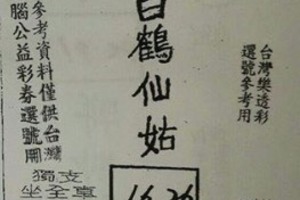 台灣樂透彩
選號參考用
白鶴仙姑
參考資料僅供台灣
腦公益彩券選號用
獨支
坐全車
16 26